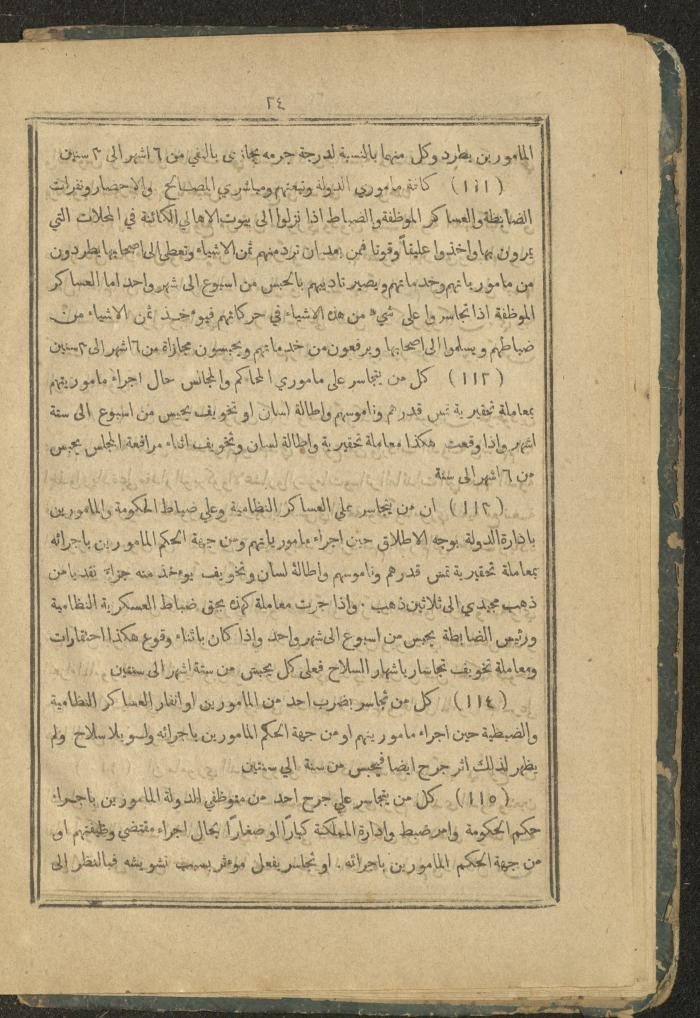 ٢٤
المامورين يطرد وكل منهما بالنسبة لدرجة جرمه يجازى بالنفي من ٦ اشهر الى ٣ سنين
(١١١) كافة ماموري الدولة وتبعتهم ومباشري المصالح والاحضار ونفرات
الضابطة والعساكر الموظفة والضباط اذا نزلوا الى بيوت الاهالي الكائنة في المحلات التي
يمرون بها واخذوا عليقاً وقوتا فمن بعد ان ترد منهم ثمن الاشياء وتعطى الى اصحابها يطردون
من مامورياتهم وخدماتهم ويصير تاديبهم بالحبس من اسبوع الى شهر واحد اما العساكر
الموظفة اذا تجاسروا على شيء من هذه الاشياء في حركاتهم فيوءخذ ثمن الاشياء من
ضباطهم ويسلموا الى اصحابها ويرفعون من خدماتهم ويحبسون مجازاة من ٦ اشهر الى ٣ سنين
(١١٢) كل من يتجاسر على ماموري المحاكم والمجالس حال اجراء ماموريتهم
بمعاملة تحقيرية تمس قدرهم وناموسهم واطالة لسان او تخويف يحبس من اسبوع الى ستة
اشهر واذا وقعت هكذا معاملة تحقيرية واطالة لسان وتخويف اثناء مرافعة المجلس يحبس
من ٦ اشهر الى سنة
(١١٣) ان من يتجاسر على العساكر النظامية وعلى ضباط الحكومة والمامورين
بادارة الدولة بوجه الاطلاق حين اجراء مامورياتهم ومن جهة الحكم المامورين باجرائه
بمعاملة تحقيرية تمس قدرهم وناموسهم واطالة لسان وتخويف يوءخذ منه جزاء نقديا من
ذهب مجيدي الى ثلاثين ذهب . واذا جرت معاملة كهذه بحق ضباط العسكرية النظامية
ورئيس الضابطة يحبس من اسبوع الى شهر واحد واذا كان باثناء وقوع هكذا احتقارات
ومعاملة تخويف تجاسار باشهار السلاح فعلى كل يحبس من ستة اشهر الى سنتين
(١١٤) كل من تجاسر بضرب احد من المامورين او انفار العساكر النظامية
والضبطية حين اجراء مامورينهم او من جهة الحكم المامورين باجرائه ولو بلا سلاح ولم
يظهر لذلك اثر جرح ايضا فيحبس من سنة الي سنتين
(١١٥) كل من يتجاسر علي جرح احد من موظفي الدولة المامورين باجراء
حكم الحكومة وامر ضبط وادارة المملكة كبارًا او صغارًا بحال اجراء مقتضي وظيفتهم او
من جهة الحكم المامورين باجرائه . او تجاسر بفعل موءثر بسبب تشويشه فبالنظر الى